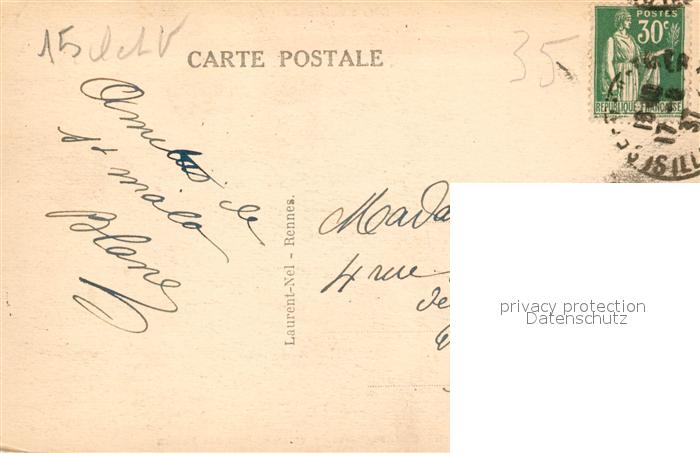 CARTE POSTALE
35
POSTES
30c
REPUBLIQUE FRANÇAISE
Amitiés de
St malo
Laurent-Nel - Rennes.
4 rue
de
privacy protection
Datenschutz